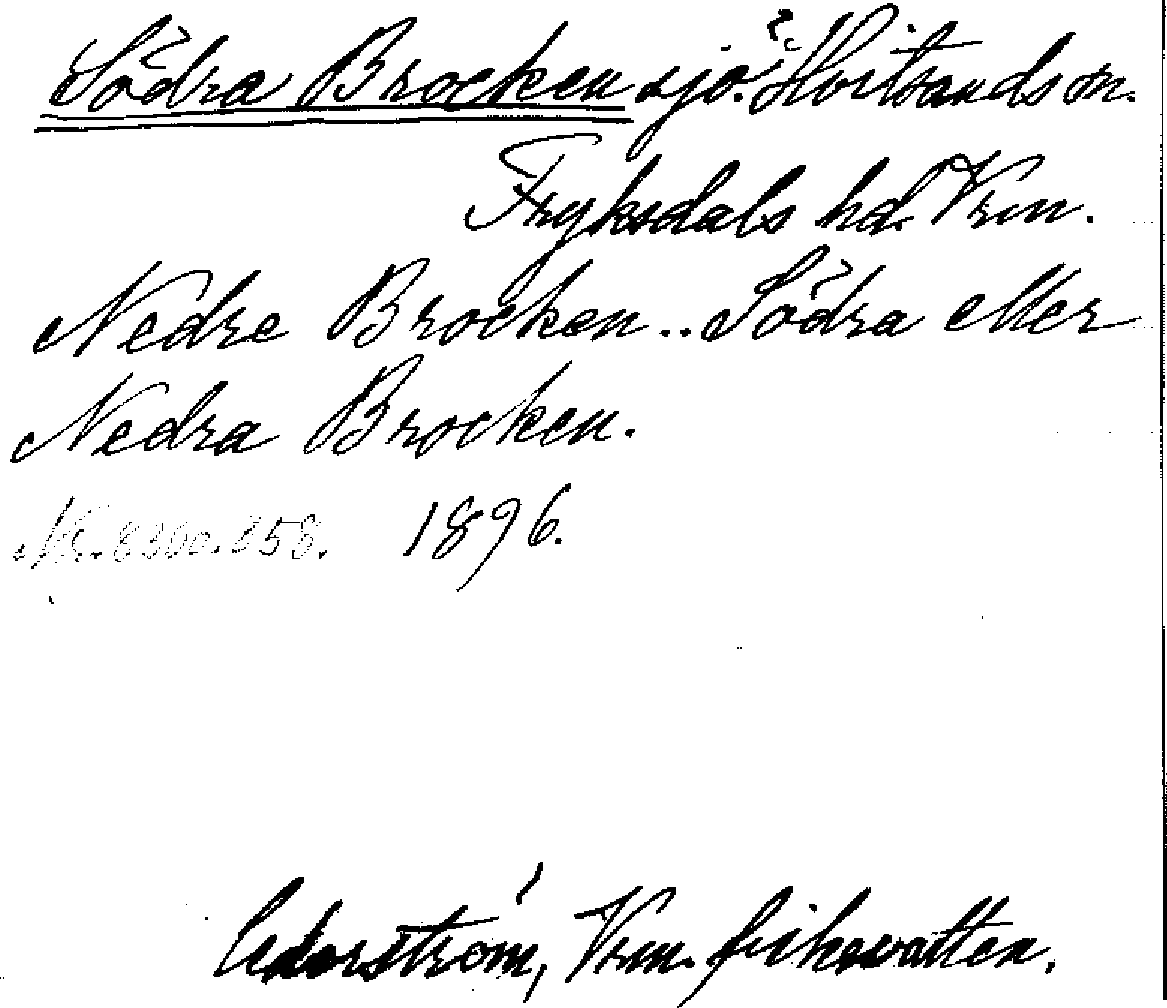 Södra Brocken sjö. Hvitsands sn.
Fryksdals hd. Vrm.
Nedre Brocken.. Södra eller
Nedra Brocken.
1896.
Cederström, Vrm. fiskevatten.